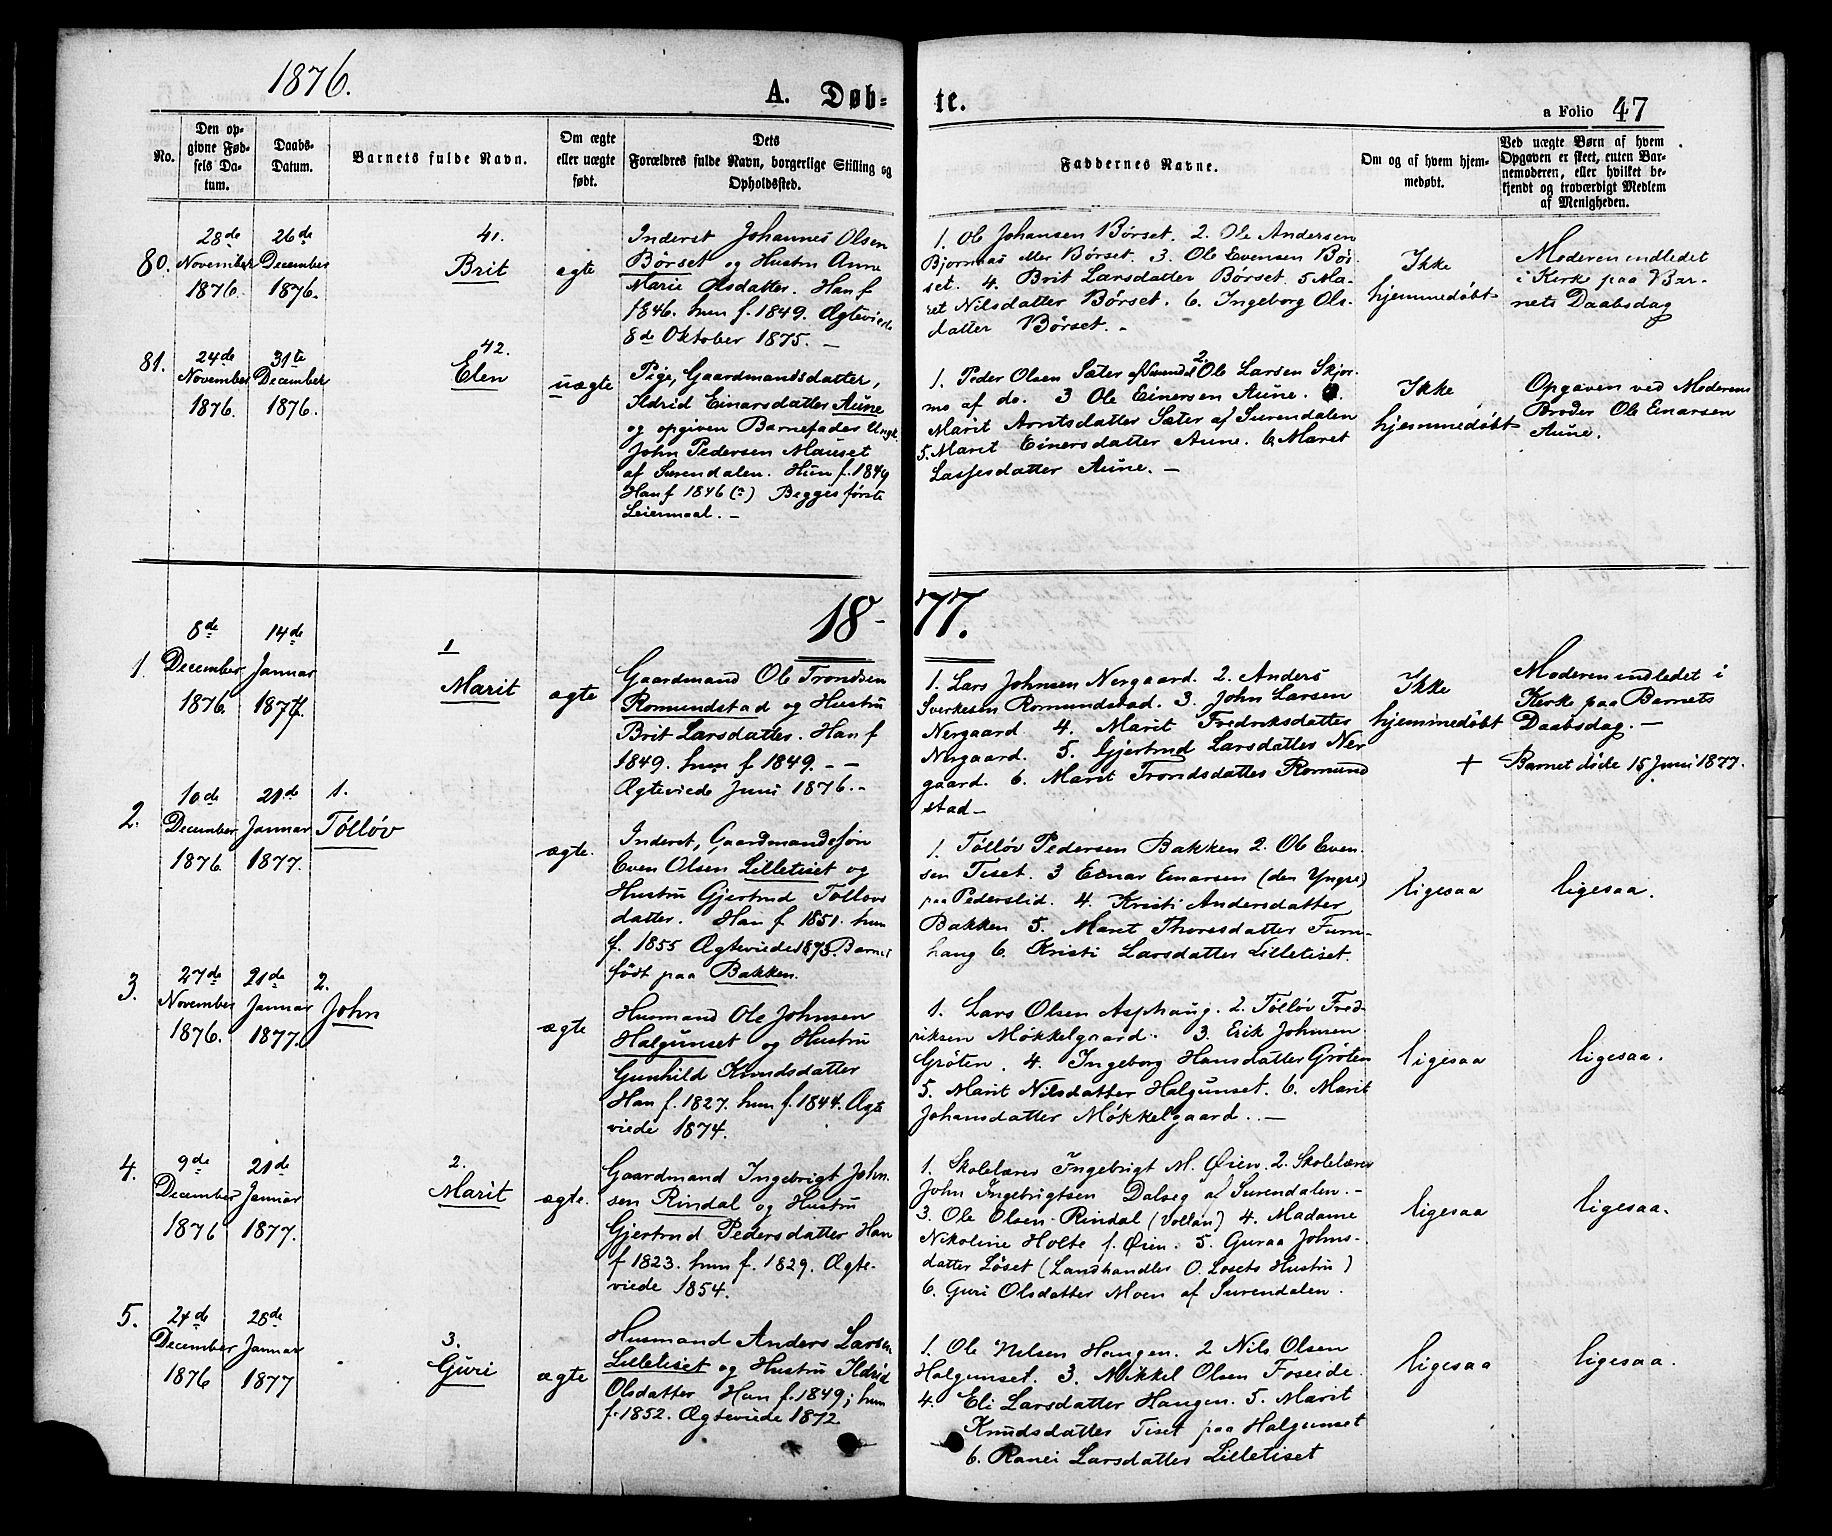 1876.
A. Døb-
te.
a Folio 47
No.
Den op-
givne Fød-
sels Da-
tum.
Daabs-
Datum.
Barnets fulde Navn.
Om ægte
eller uægte
født.
Dets
Forældres fulde Navn, borgerlige Stilling og
Opholdssted.
Faddernes Navne.
Om og af hvem hjem-
medøbt.
Ved uægte Børn af hvem
Opgaven er skeet, enten Bar-
nemoderen, eller hvilket be-
kjendt og troværdigt Medlem
af Menigheden.
80.
28de
November
1876.
26de
December
1876.
41.
Brit
ægte
Inderst Johannes Olsen
Børset og Hustru Anne
Marie Olsdatter. Han f
1846. hun f. 1849. Ægteviede
8de Oktober 1875. —
1. Ole Johansen Børset. 2. Ole Andersen
Bjørnaas eller Børset. 3. Ole Evensen Bør-
set. 4. Brit Larsdatter Børset. 5 Ma-
ret Nilsdatter Børset. 6. Ingeborg Ols-
datter Børset. —
Ikke
hjemmedøbt
Moderen indledet
i Kirke paa Bar-
nets Daabsdag
81.
24de
November
1876.
31te
December
1876.
42.
Elen
uægte
Pige, Gaardmandsdatter,
Ildrid Einarsdatter Aune
og opgiven Barnefader Ungk.
John Pedersen Mauset
af Surendalen. Hun f. 1849
Han f 1846 (?) Begges første
Leiermaal. —
1. Peder Olsen Sæter af Surendal 2. Ole Larsen Skjer-
mo af do. 3 Ole Einersen Aune. 4.
Marit Arntsdatter Sæter af Surendalen
5. Marit Einersdatter Aune. 6. Maret
Lassesdatter Aune. —
Ikke
hjemmedøbt
Opgaven ved Moderens
Broder Ole Einarsen
Aune.
18-77.
1.
8de
December
1876.
14de
Januar
1877.
1
Marit
ægte
Gaardmand Ole Trondsen
Romundstad og Hustru
Brit Larsdatter. Han f
1849. hun f 1849. - -
Ægteviede Juni 1876. -
1. Lars Johnsen Nergaard. 2. Anders
Sverkesen Romundstad. 3. John Larsen
Nergaard. 4. Marit Fredriksdatter
Nergaard. 5. Gjertrud Larsdatter Ner
gaard. 6. Marit Trondsdatter Romund
stad —
Ikke
hjemmedøbt
+
Moderen indledet i
Kirke paa Barnets
Daabsdag. —
Barnet døde 15 Juni 1877.
2.
10de
December
1876.
21de
Januar
1877.
1.
Tølløv
ægte.
Inderst, Gaardmandssøn
Even Olsen Lilletiset og
Hustru Gjertrud Tølløvs
datter. Han f. 1851. hun
f. 1855 Ægteviede 1875. Barnet
født paa Bakken.
1. Tølløv Pedersen Bakken 2. Ole Even-
sen Tiset. 3 Einar Einarsen (den Yngre)
paa Pederslid. 4. Kristi Andersdatter
Bakken 5. Maret Thoresdatter Furu-
haug 6. Kristi Larsdatter Lilletiset.
ligesaa
ligesaa.
3.
27de
November
1876.
21de
Januar
1877.
2.
John
ægte
Husmand Ole Johnsen
Halgunset og Hustru
Gunhild Knudsdatter
Han f. 1827. hun f. 1844. Ægte
viede 1874.
1. Lars Olsen Asphaug. 2. Tølløv Fred-
riksen Møkkelgaard. 3. Erik Johnsen
Grøten. 4. Ingeborg Hansdatter Grøten
5. Marit Nilsdatter Halgunset. 6. Marit
Johansdatter Møkkelgaard. —
ligesaa
ligesaa.
4.
9de
December
1876
21de
Januar
1877.
2.
Marit
ægte.
Gaardmand Ingebrigt John-
sen Rindal og Hustru
Gjertrud Pedersdatter Han
f 1823. hun f. 1829. Ægte-
viede 1854.
1. Skolelærer Ingebrigt M. Øien. 2. Skolelærer
John Ingebrigtsen Dalseg af Surendalen. -
3. Ole Olsen Rindal (Vollan) 4. Madame
Nikoline Holte f. Øien. 5. Guraa Johns-
datter Løset (Landhandler O. Løsets Hustru)
6. Guri Olsdatter Moen af Surendalen.
ligesaa
ligesaa.
5.
24de
December
1876
28de
Januar
1877
3.
Guri
ægte
Husmand Anders Larsen
Lilletiset og Hustru Ildrid
Olsdatter Han f. 1849; hun
f. 1852. Ægteviede 1872.
1. Ole Nilsen Haugen. 2 Nils Olsen
Halgunset. 3. Mikkel Olsen Foseide.
4. Eli Larsdatter Haugen. 5. Marit
Knudsdatter Tiset paa Halgunset
6. Ranei Larsdatter Lilletiset
ligesaa
ligesaa.